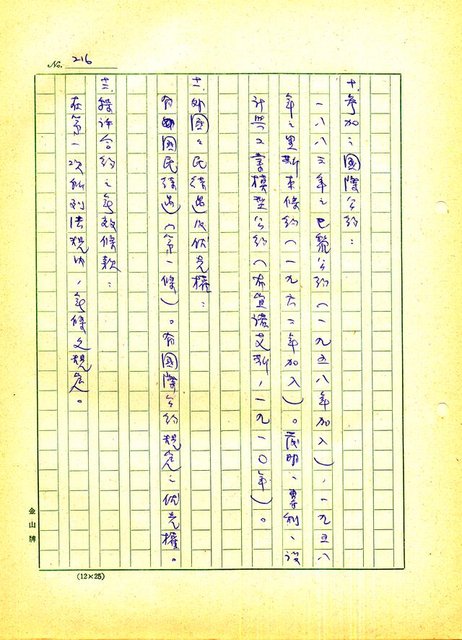 No. 216
十、參加之國際公約:
一八八三年之巴黎公約(一九五八年加入),一九五八
年之里斯本條約(一九六二年加入)。發明、專利、設
計與工業模型公約(布宜諾艾斯,一九一〇年)。
十一、外國之民待遇及優先權:
有外國民待遇(第一條)。有國際公約規定之優先權。
十二、授許合約之無效條款:
在第一次所列法規內,無條文規定。
金山牌
(12×25)